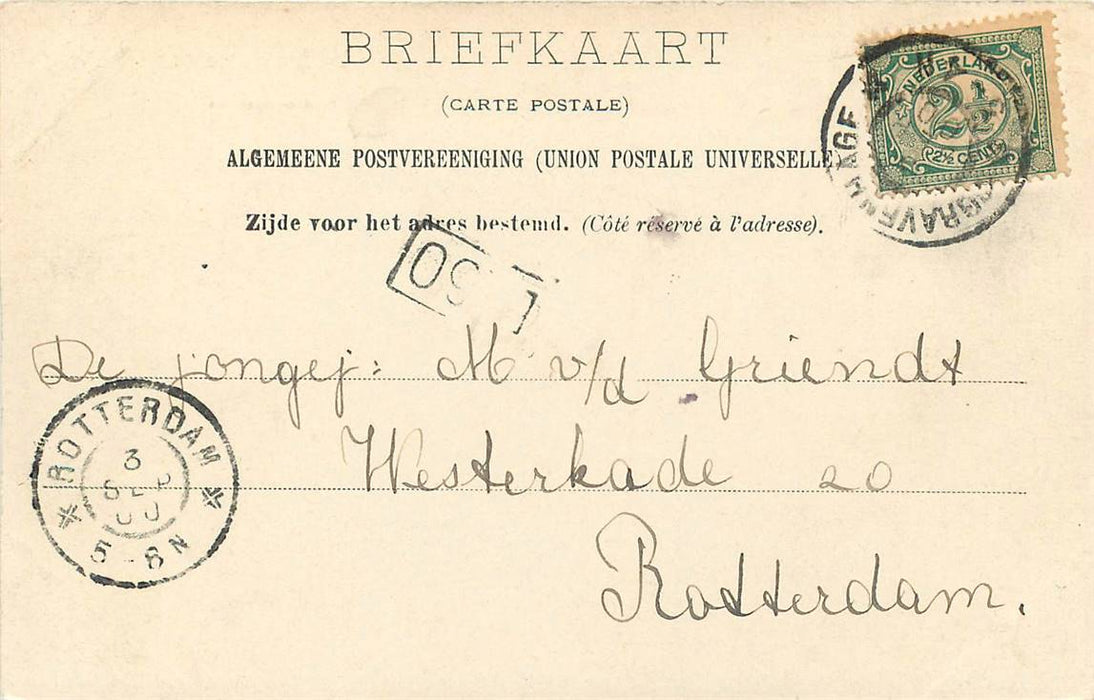 BRIEFKAART
(CARTE POSTALE)
ALGEMEENE POSTVEREENIGING (UNION POSTALE UNIVERSELLE)
Zijde voor het adres bestemd. (Côté réservé à l'adresse).
NEDERLAND
2½
2½ CENT
GRAVENHAGE
De jongej: M v/d Griendt
Westerkade 20
Rotterdam.
ROTTERDAM
3
SEP
00
5-8N